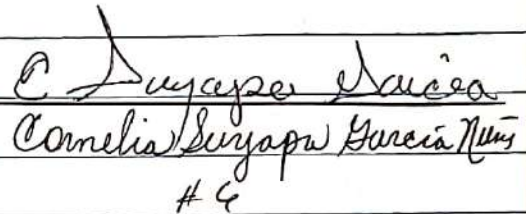 C Suyapa García
Cornelia Suyapa García Nuñs
# 6